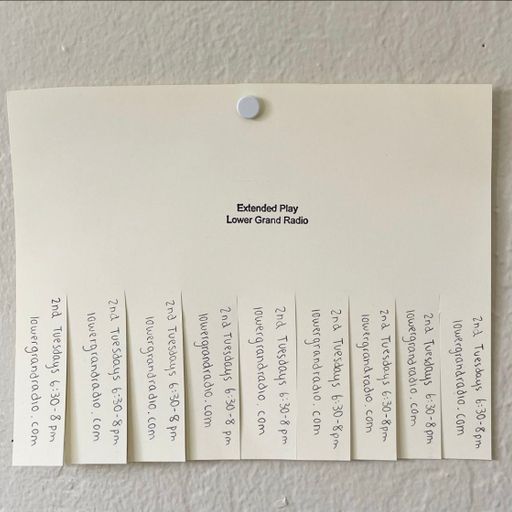 Extended Play
Lower Grand Radio
2nd Tuesdays 6:30-8pm
lowergrandradio.com
2nd Tuesdays 6:30-8pm
lowergrandradio.com
2nd Tuesdays 6:30-8pm
lowergrandradio.com
2nd Tuesdays 6:30-8pm
lowergrandradio.com
2nd Tuesdays 6:30-8pm
lowergrandradio.com
2nd Tuesdays 6:30-8pm
lowergrandradio.com
2nd Tuesdays 6:30-8pm
lowergrandradio.com
2nd Tuesdays 6:30-8pm
lowergrandradio.com
2nd Tuesdays 6:30-8pm
lowergrandradio.com